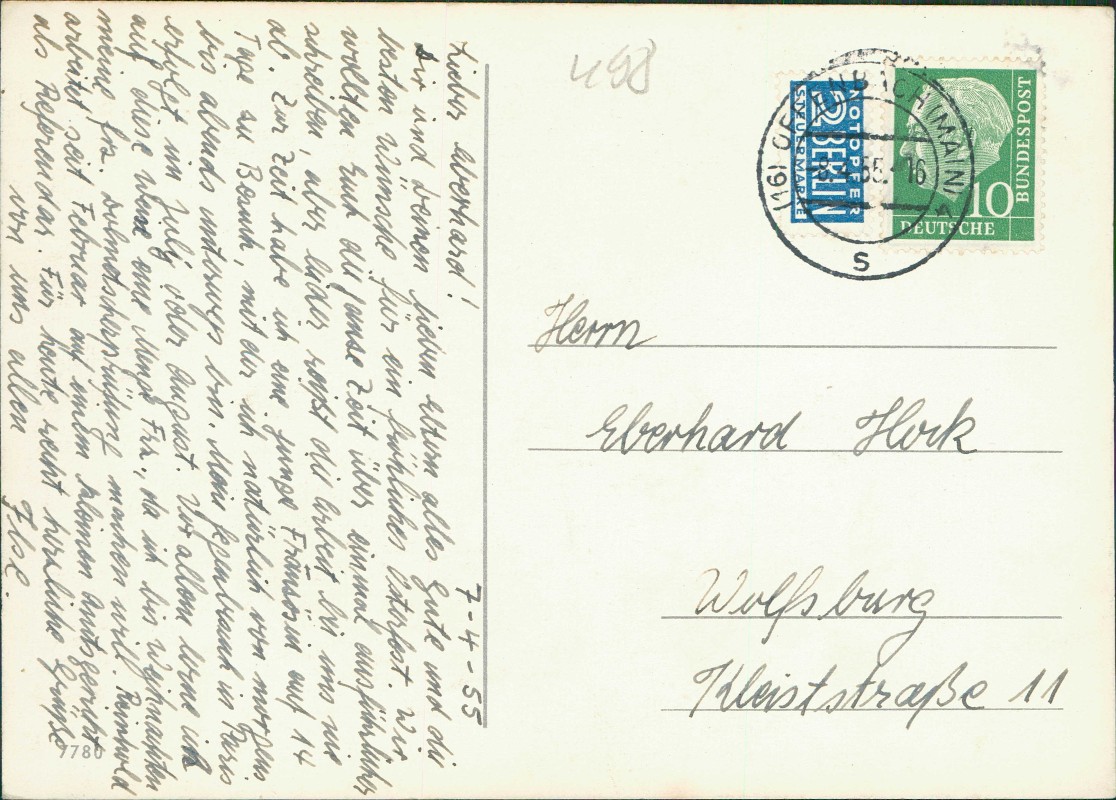 7-4-55
Lieber Eberhard!
Dir und Deinen lieben Eltern alles Gute und die
besten Wünsche für ein fröhliches Osterfest. Wir
wollten Euch die ganze Zeit über einmal ausführlicher
schreiben, aber leider reißt die Arbeit bei uns nie
ab. Zur Zeit habe ich eine junge Französin auf 14
Tage zu Besuch, mit der ich natürlich von morgens
bis abends unterwegs bin. Mein Gegenbesuch in Paris
erfolgt im Juli oder August. Vor allem lerne ich
auf diese Weise eine Menge Frz., da ich bis Weihnachten
meine frz. Dolmetscherprüfung machen will. Reinhold
arbeitet seit Februar auf einem kleinen Amtsgericht
als Referendar. Für heute recht herzliche Grüße
von uns allen
Ilse.
7780
498
NOTOPFER
2 BERLIN
STEUERMARKE
(16) OFFENBACH (MAIN) 4
8.4.55.-16
S
10
DEUTSCHE
BUNDESPOST
Herrn
Eberhard Hock
Wolfsburg
Kleiststraße 11